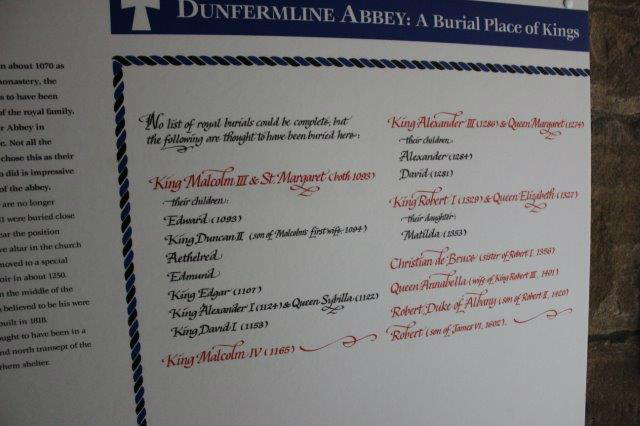 DUNFERMLINE ABBEY: A BURIAL PLACE OF KINGS
n about 1070 as
monastery, the
s to have been
of the royal family.
r Abbey in
e. Not all the
chose this as their
o did is impressive
of the abbey.
are no longer
ll were buried close
ear the position
ve altar in the church
moved to a special
oir in about 1250.
n the middle of the
believed to be his were
built in 1818.
ought to have been in a
nd north transept of the
them shelter.
No list of royal burials could be complete, but
the following are thought to have been buried here:
King Malcolm III & St. Margaret (both 1093)
their children:
Edward (1093)
King Duncan II (son of Malcolm's first wife, 1094)
Aethelred
Edmund
King Edgar (1107)
King Alexander I (1124) & Queen Sybilla (1122)
King David I (1153)
King Malcolm IV (1165)
King Alexander III (1286) & Queen Margaret (1274)
their children:
Alexander (1284)
David (1281)
King Robert I (1329) & Queen Elizabeth (1327)
their daughter:
Matilda (1353)
Christian de Bruce (sister of Robert I, 1356)
Queen Annabella (wife of King Robert III, 1401)
Robert, Duke of Albany (son of Robert II, 1420)
Robert (son of James VI, 1602).